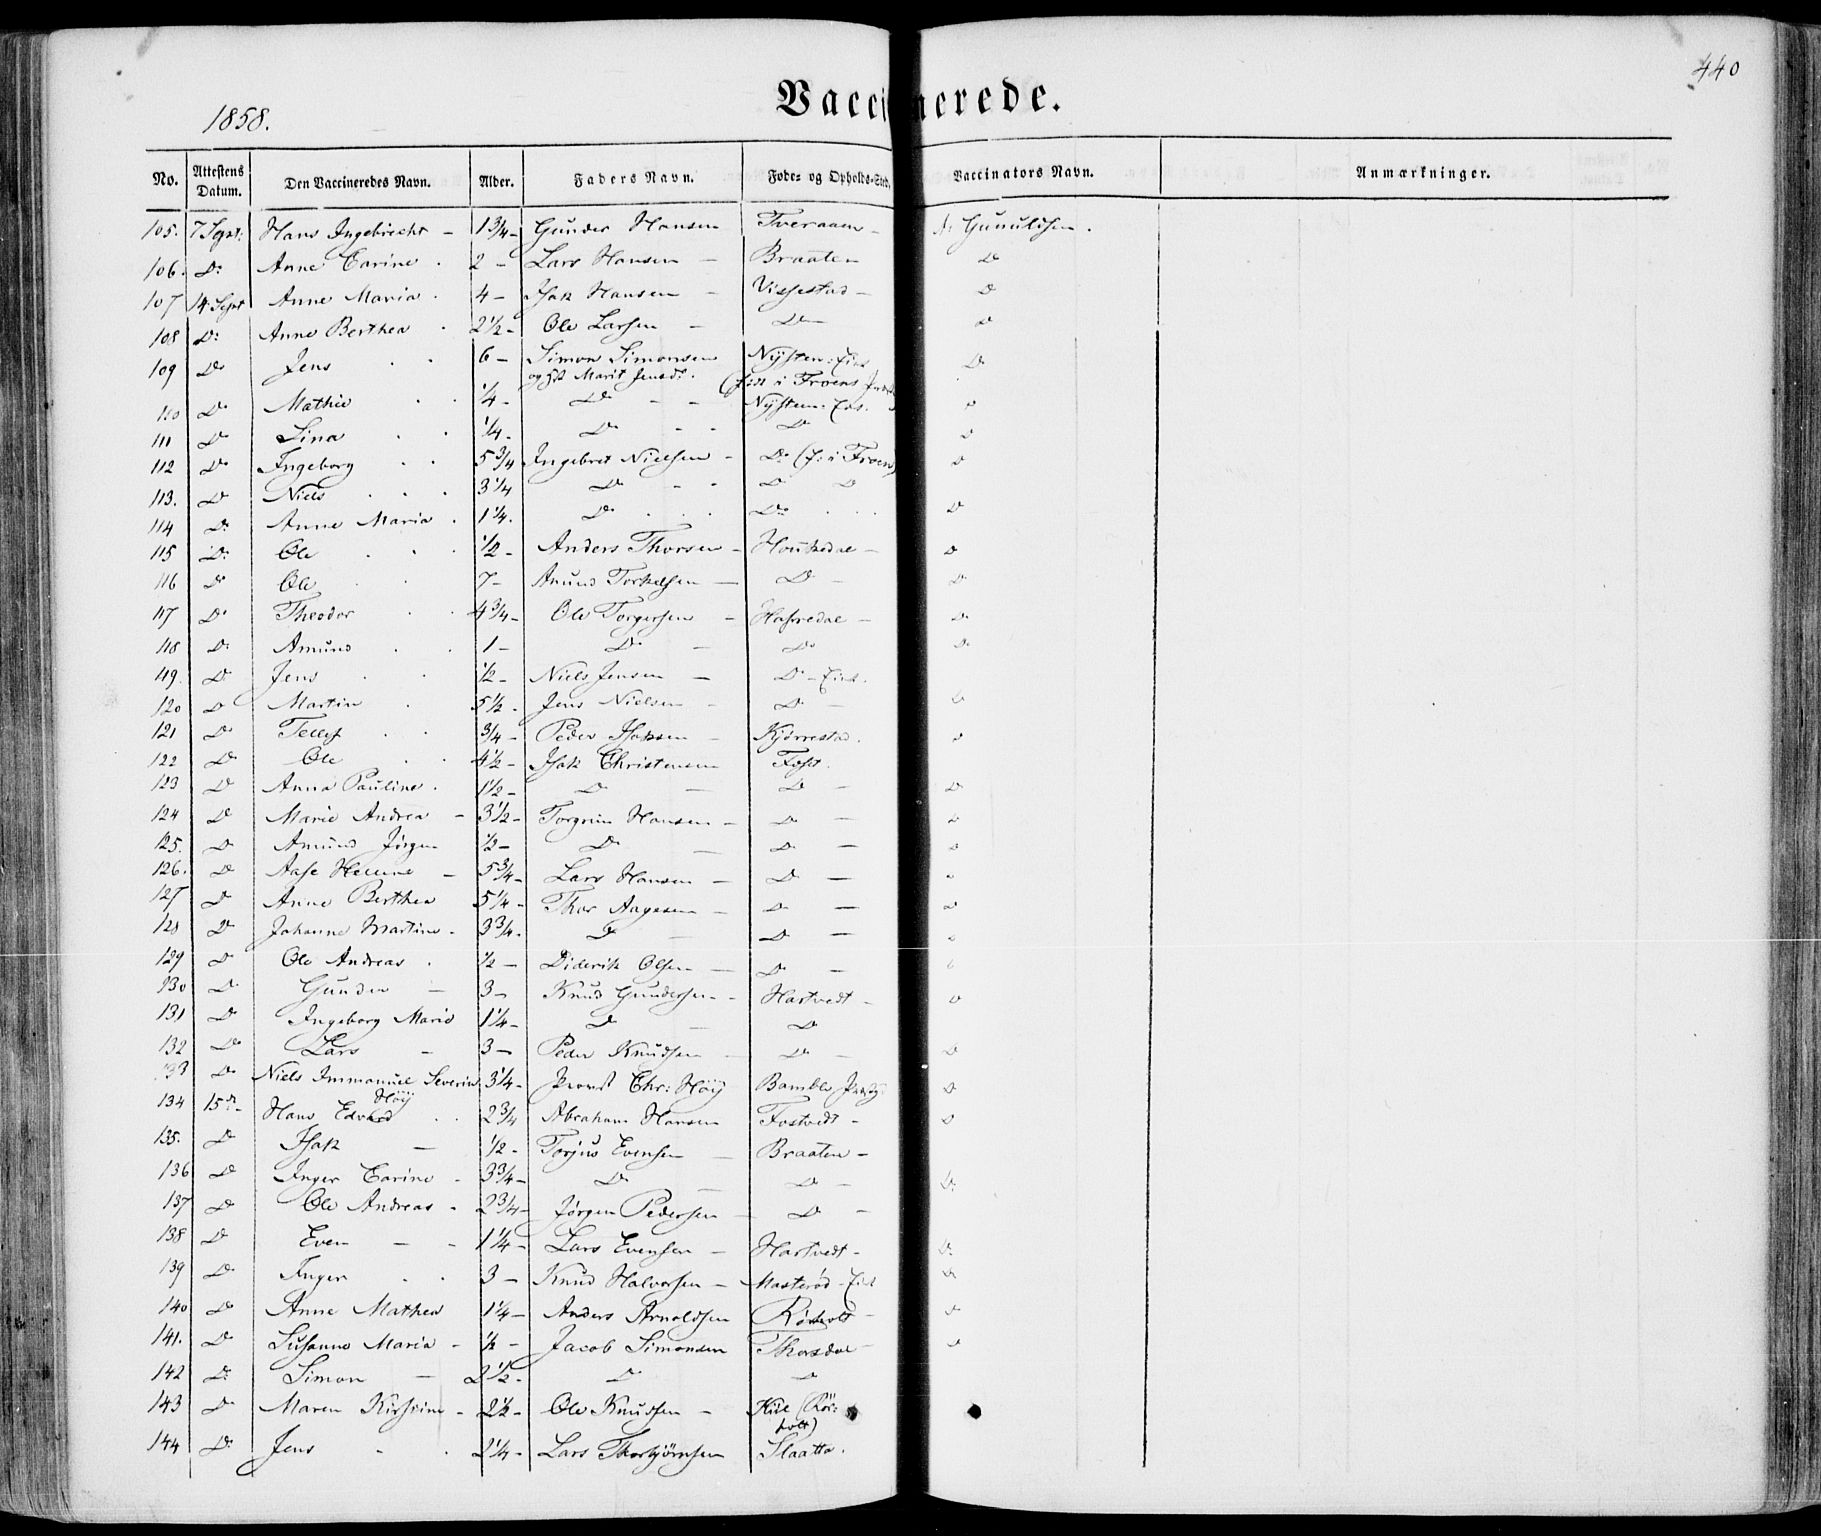 440
1858.
Vaccinerede.
No. Attestens Datum. Den Vaccineredes Navn. Alder. Faders Navn. Føde- og Opholds-Sted. Vaccinators Navn. Anmærkninger.
105. 7 Sept: Hans Ingebrecht - 1 3/4 - Gunder Hansen Tveraaen - N: Gunuldsen.
106. Do Anne Carine . 2 - Lars Hansen - Braaten Do
107 14 Sept Anne Maria . 4 - Isak Hansen - Vissestad - Do
108 Do Anne Berthea . 2 1/2 - Ole Larsen - Do - Do
109 Do Jens . . 6 - Simon Simonsen Nysten: Eiet Do
og Marit Jensdr. (f: i Froens
110 Do Mathie . . 1/4 - Do - - Nysten: Eiet. Do
111 Do Lina . . 1/4 - Do - - Do Do
112 Do Ingeborg . . 5 3/4 Ingebret Nielsen - Do (f: i Froen) Do
113. Do Niels . . . 3 1/4 Do - - Do Do
114 Do Anne Maria . 1 1/4. Do . . . Do . . Do
115 Do Ole . . 1/2 - Anders Thorsen - Houkedal - Do
116 Do Ole . . 7 - Amund Torkelsen - Do - Do
117 Do Theodor . . 4 3/4 - Ole Torgersen - Hafredal - Do
118 Do Amund . . 1 - Do - Do Do
119. Do Jens . . 1/2 - Niels Jensen - Do - Eiet.
120 Do Martin . 5 1/2 - Jens Nielsen - Do - Do
121 Do Tellef . . 3/4 - Peder Isaksen - Kjørrestad. Do
122 Do Ole . . 4 1/2 - Isak Christensen Fost.
123 Do Anna Pauline . 1 1/2 - Do - Do - Do
124 Do Marie Andrea - 3 1/2 - Torgrim Hansen - Do - Do
125. Do Amund Jørgen 1/2 - Do - Do - Do
126. Do Aase Helene - 5 3/4 - Lars Hansen - Do - Do
127 Do Anne Berthea 5 1/4 - Thor Aagesen - Do - Do
128 Do Johanne Martine . 3 3/4. Do - Do - Do
129 Do Ole Andreas . 1/2 - Diderik Olsen - Do - Do
130 Do Gunder - 3 - Knud Gundersen - Hartvedt - Do
131 Do Ingeborg Marie 1 1/4 - Do - Do
132 Do Lars - 3 - Peder Knudsen - Do - Do
133 Do Niels Immanuel Severin 3 1/4 - Provst Chr: Höÿ Bamble Do
Höÿ
134 15de - Hans Edvard . . 2 3/4 Abraham Hansen Fostvedt - Do
135. Do Isak - 1/2 - Torjus Evensen - Braaten -
136 Do Inger Carine . 3 3/4 - Do - Do - Do
137 Do Ole Andreas . 2 3/4 - Jørgen Pedersen - Do -
138 Do Even - - 1 1/4 - Lars Evensen - Hartvedt - Do
139 Do Inger . . 3 - Knud Halvorsen - Masterød - Eiet Do
140 Do Anne Mathea 1 1/4 - Anders Arnoldsen Rørholt - Do
141. Do Susanne Maria - 1/2 - Jacob Simonsen Thorsdal - Do
142 Do Simon - 2 1/2 - Do Do
143 Do Maren Kirstine - 2 1/2 - Ole Knudsen - Kiil (Rør:
holt)
144 Do Jens - . 2 1/4 - Lars Thorbjørnsen Slaatta.